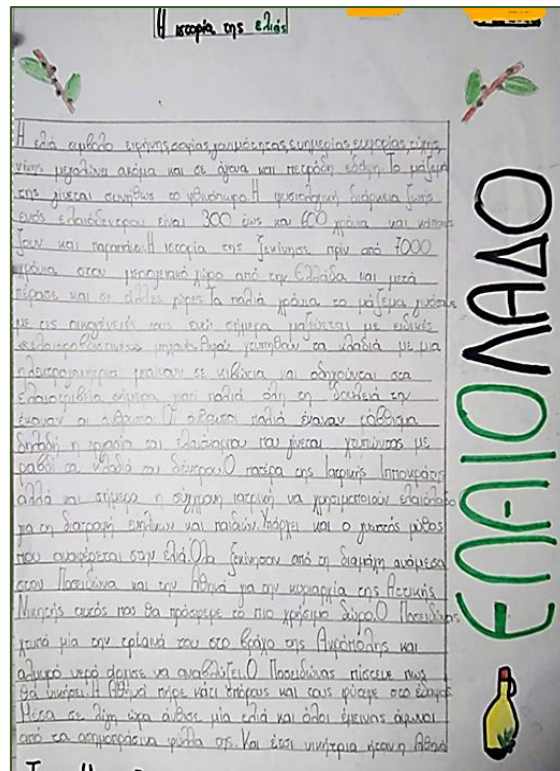 Η ιστορία της ελιάς
Η ελιά σύμβολο ειρήνης, σοφίας, γονιμότητας, ευημερίας, ευφορίας, τύχης,
νίκης μεγαλώνει ακόμα και σε άγονα και πετρώδη εδάφη. Το μάζεμα
της γίνεται συνήθως το φθινόπωρο. Η φυσιολογική διάρκεια ζωής
ενός ελαιόδεντρου είναι 300 έως και 600 χρόνια και κάποια
ζουν και παραπάνω. Η ιστορία της ξεκίνησε πριν από 7000
χρόνια στον μεσογειακό χώρο από την Ελλάδα και μετά
πέρασε και σε άλλες χώρες. Τα παλιά χρόνια το μάζεμα γινόταν
με τις οικογένειές τους ενώ σήμερα μαζεύεται με ειδικές
μηχανές. Αφού χτυπηθούν τα κλαδιά με μια
μπαίνουν σε κιβώτια και οδηγούνται στα
ελαιοτριβεία σήμερα γιατί παλιά όλη τη δουλειά την
έκαναν οι άθρωποι. Οι άθρωποι παλιά έκαναν ράβδισμα
δηλαδή η εργασία του ελαιόκαρπου που γίνεται χτυπώντας με
ραβδί τα κλαδιά του δέντρου. Ο πατέρα της Ιατρικής Ιπποκράτης
αλλά και σήμερα η σύγχρονη ιατρική να χρησιμοποιούν ελαιόλαδο
για τη διατροφή ενηλίκων και παιδιών. Υπάρχει και ο γνωστός μύθος
που αναφέρεται στην ελιά. Όλα ξεκίνησαν από τη διαμάχη ανάμεσα
στον Ποσειδώνα και την Αθηνά για την κυριαρχία της Αττικής
Νικητής αυτός που θα πρόσφερε το πιο χρήσιμο δώρο. Ο Ποσειδώνας
χτυπά μία την τρίαινά του στο βράχο της Ακρόπολης και
αλμυρό νερό άρχισε να αναβλύζει. Ο Ποσειδώνας πίστευε πως
θα νικήσει. Η Αθηνά πήρε κάτι σπόρους και τους φύτεψε στο έδαφος
Μέσα σε λίγη ώρα άνθισε μία ελιά και όλοι έμεινης άφωνοι
από τα ασημοπράσινα φύλλα της. Και έτσι νικήτρια ήταν η Αθηνά
ΕΛΑΙΟΛΑΔΟ